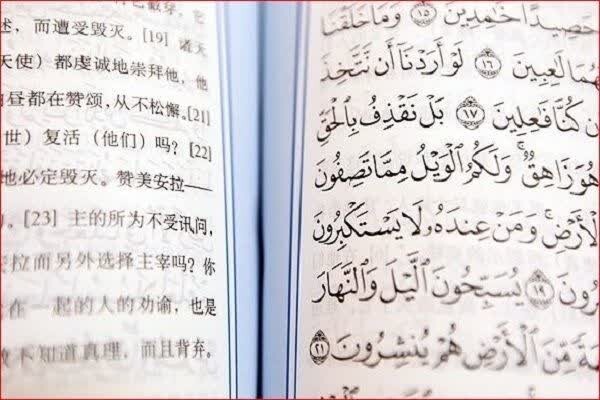 述,而遭受毁灭。[19] 诸天
天使)都虔诚地崇拜他,他
昼都在赞颂,从不松懈。[21]
世)复活(他们)吗?[22]
地必定毁灭。赞美安拉——
。[23] 主的所为不受讯问,
拉而另外选择主宰吗?你
在一起的人的劝谕,也是
不知道真理,而且背弃。
حَصِيدًا خَٰمِدِينَ ١٥ وَمَا خَلَقْنَا
هُمَا لَٰعِبِينَ ١٦ لَوْ أَرَدْنَآ أَن نَّتَّخِذَ
كُنَّا فَٰعِلِينَ ١٧ بَلْ نَقْذِفُ بِٱلْحَقِّ
هُوَ زَاهِقٌ ۚ وَلَكُمُ ٱلْوَيْلُ مِمَّا تَصِفُونَ
ٱلْأَرْضِ ۚ وَمَنْ عِندَهُۥ لَا يَسْتَكْبِرُونَ
رُونَ ١٩ يُسَبِّحُونَ ٱلَّيْلَ وَٱلنَّهَارَ
مِّنَ ٱلْأَرْضِ هُمْ يُنشِرُونَ ٢١